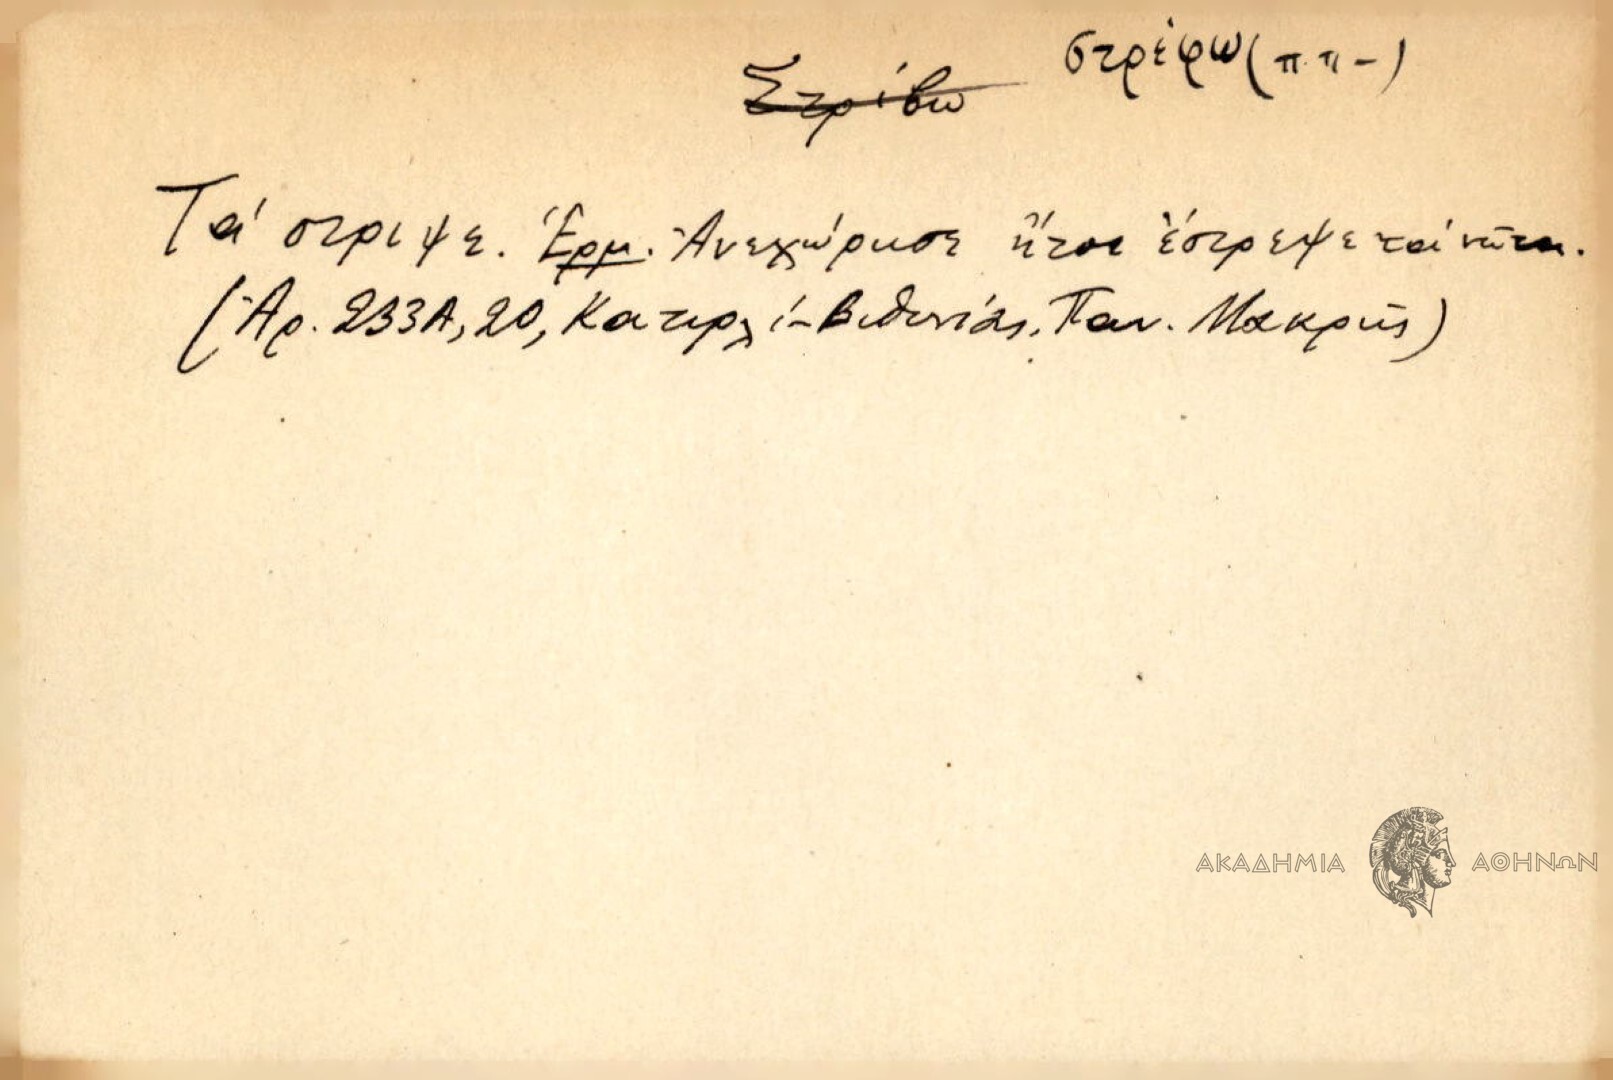 Στρίβω στρέφω (π.π-)
Τά στριψε. Ἑρμ. Ἀνεχώρησε ἤτοι ἔστρεψε τά νῶτα.
(Ἀρ. 233Α, 20, Κατιρλί-Βιθυνίας, Παν. Μακρῆς)
ΑΚΑΔΗΜΙΑ ΑΘΗΝΩΝ